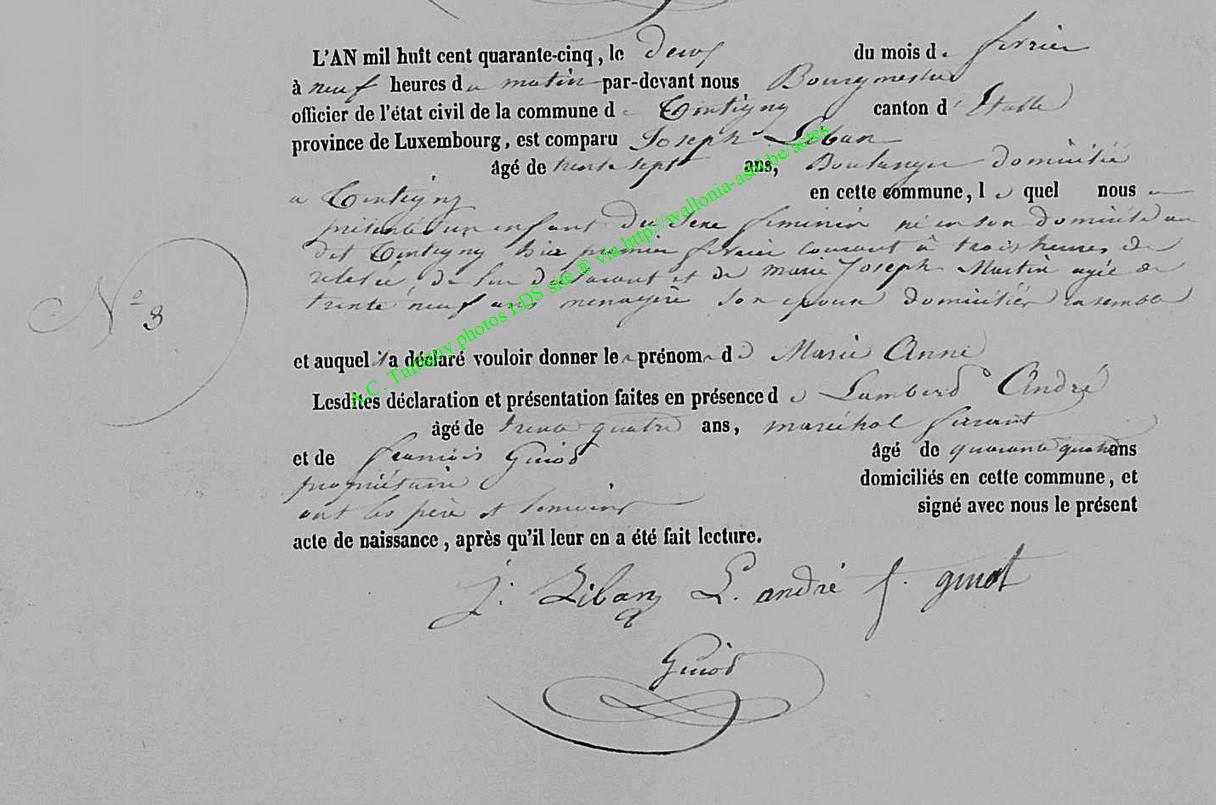 L'AN mil huit cent quarante-cinq, le deux du mois de février
à neuf heures du matin par-devant nous Bourgmestre
officier de l'état civil de la commune de Tintigny canton d'Etalle
province de Luxembourg, est comparu Joseph Liban
âgé de trente sept ans, Boulanger domicilié
a Tintigny en cette commune, le quel nous a
présenté un enfant du sexe féminin né en son domicile au
dit Tintigny hier premier février courant à trois heures de
relevée, de lui déclarant et de marie Joseph Martin agée de
trente neuf ans ménagère son epouse domiciliés ensemble
N° 3
et auquel il a déclaré vouloir donner le prénom de Marie Anne
Lesdites déclaration et présentation faites en présence de Lambert André
âgé de trente quatre ans, maréchal ferrant
et de François Guiot âgé de quarante quatre ans
propriétaire domiciliés en cette commune, et
ont les père et témoins signé avec nous le présent
acte de naissance, après qu'il leur en a été fait lecture.
J. Liban L. andré f. guiot
Guiot
A.C. Tintigny photos LDS site @ via http://wallonia-asbl.be/actes